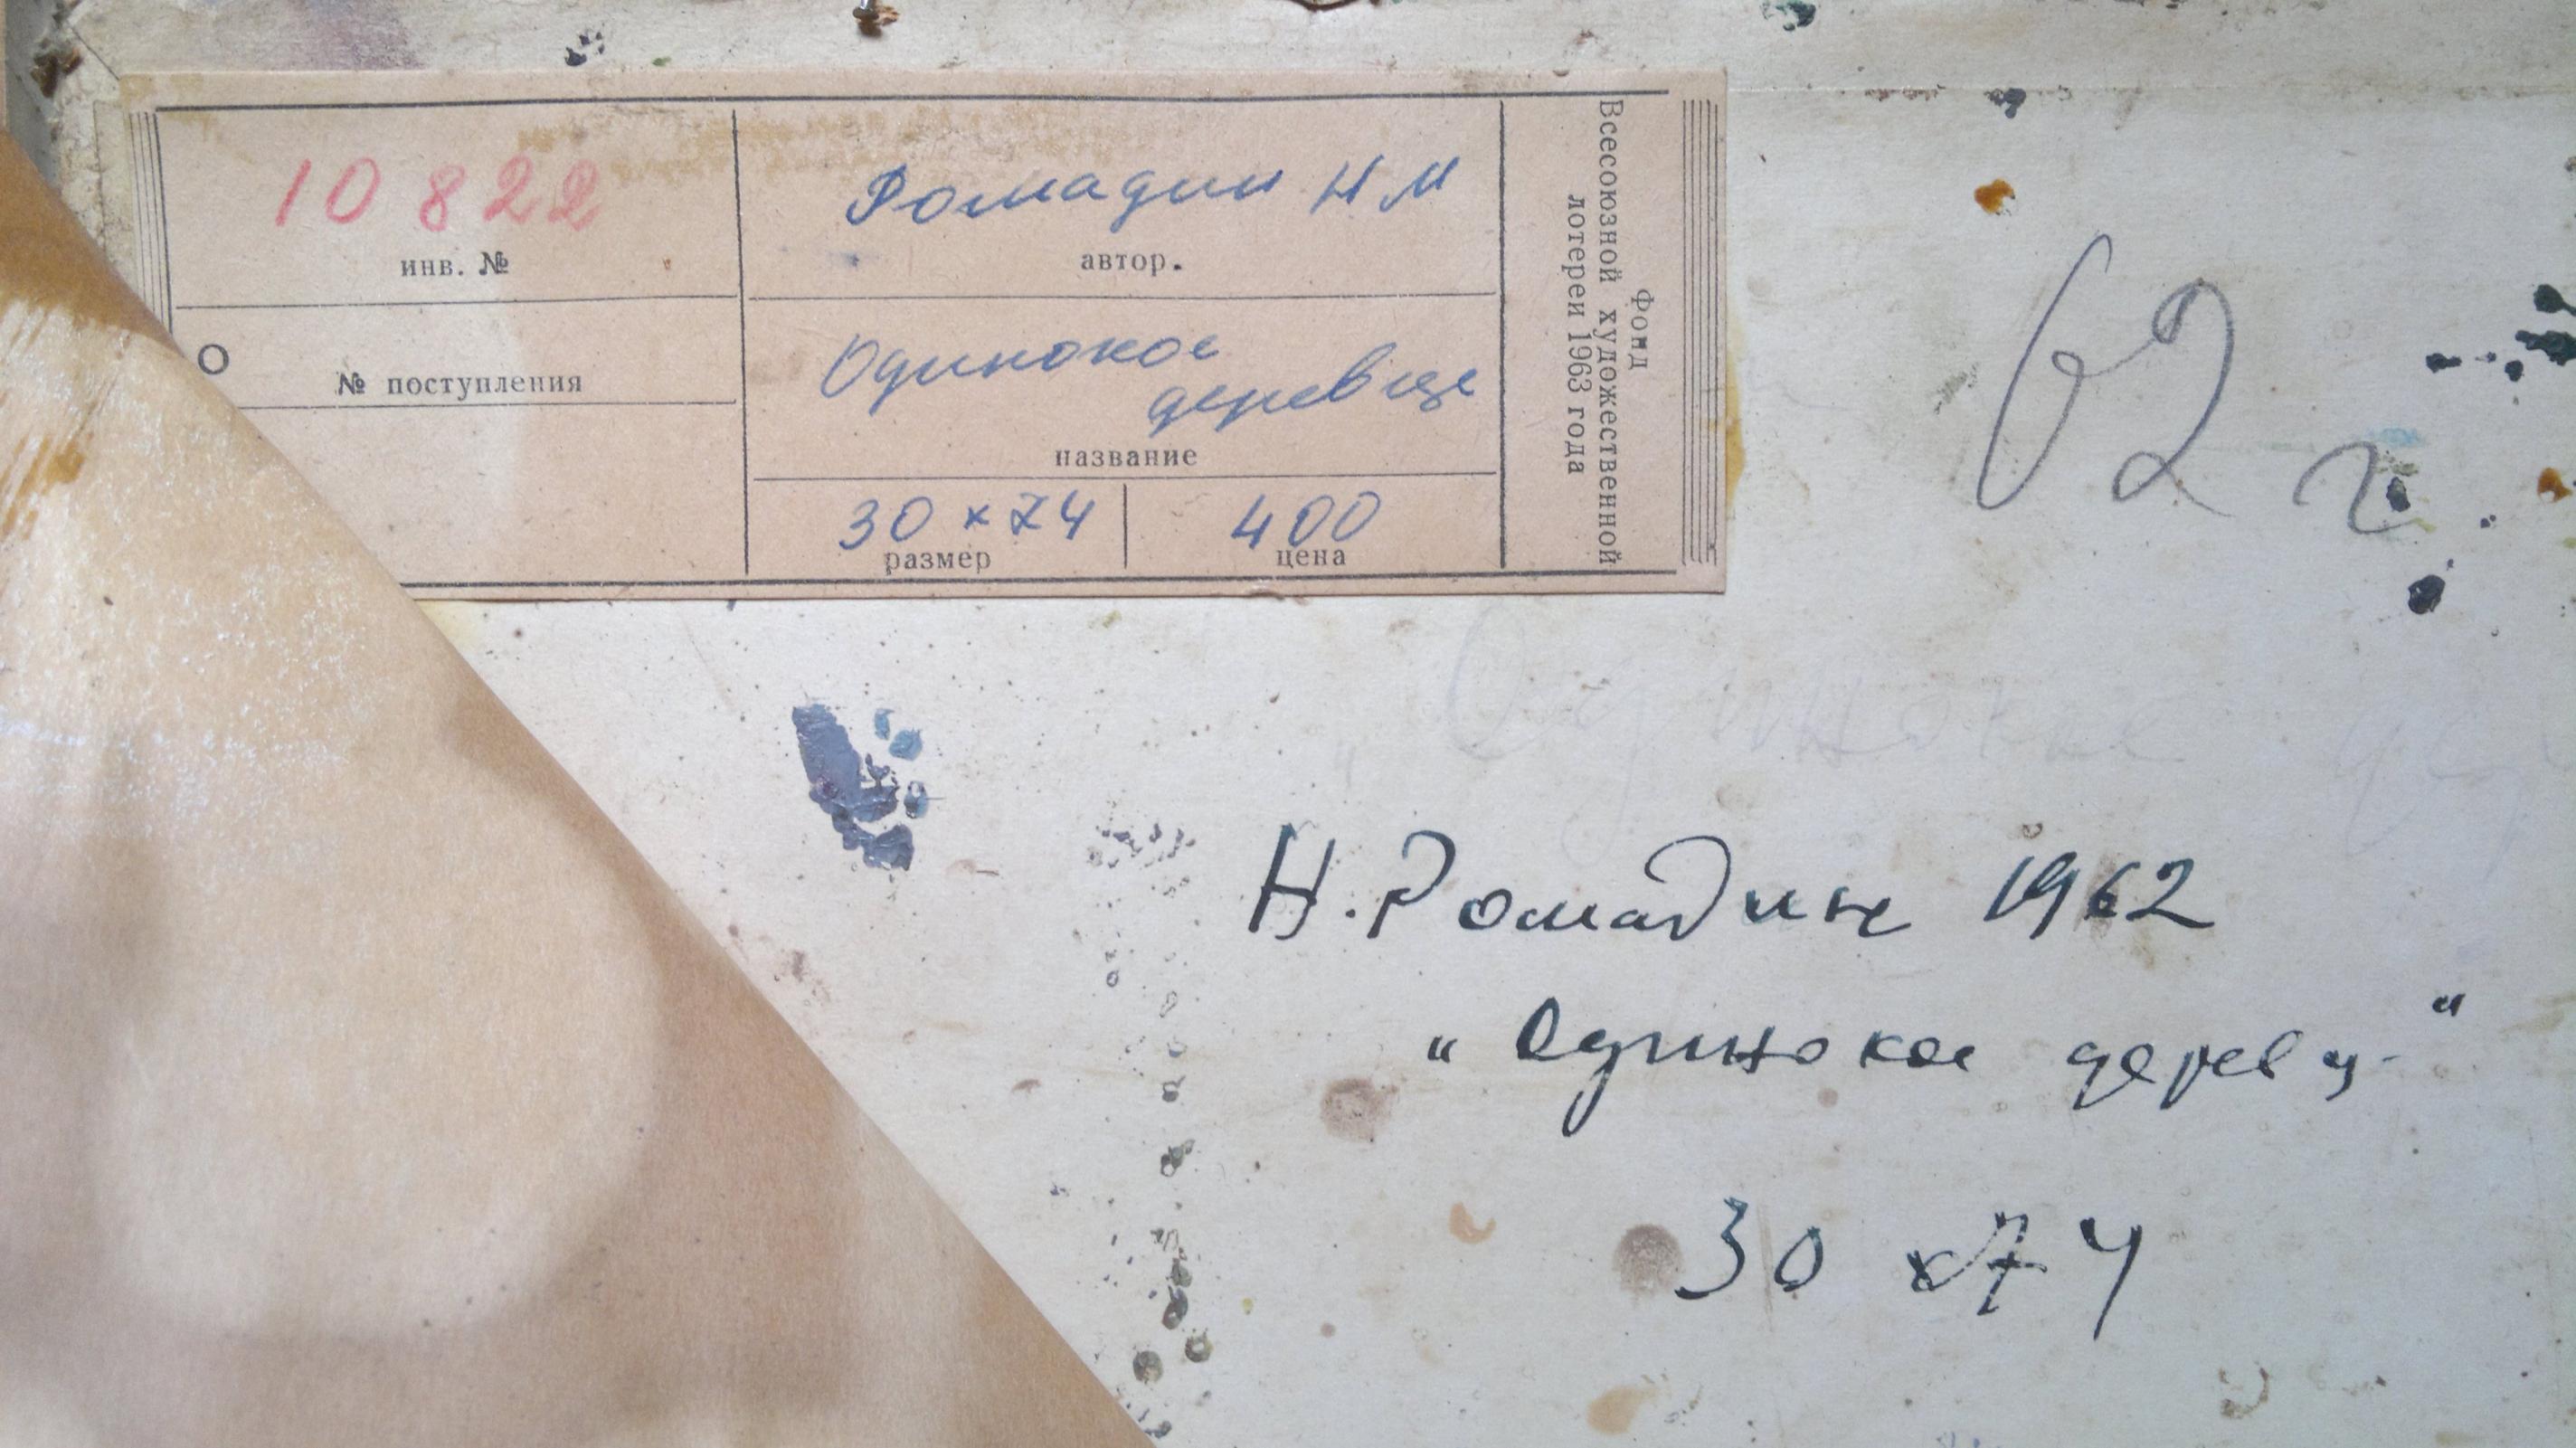 10 822
инв. №
№ поступления
Ромадин Н М
автор.
Одинокое
деревце
название
30 × 74
размер
400
цена
Фонд
Всесоюзной художественной
лотереи 1963 года
62 г
„Одинокое дер
Н. Ромадин 1962
„Одинокое деревц-"
30 х 74